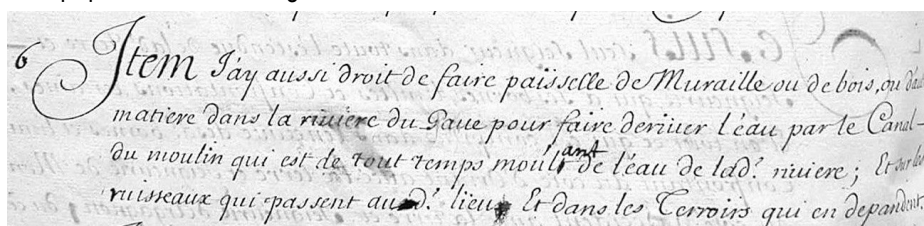 6 Item J'ay aussi droit de faire païsselle de Muraille ou de bois, ou d'au
matiere dans la riviere du Gave pour faire deriver l'éau par le Canal-
du moulin qui est de tout temps moulant de l'éau de lad.e riviere; Et sur les
ruisseaux qui passent aud.t lieu Et dans les Terroirs qui en dependent.